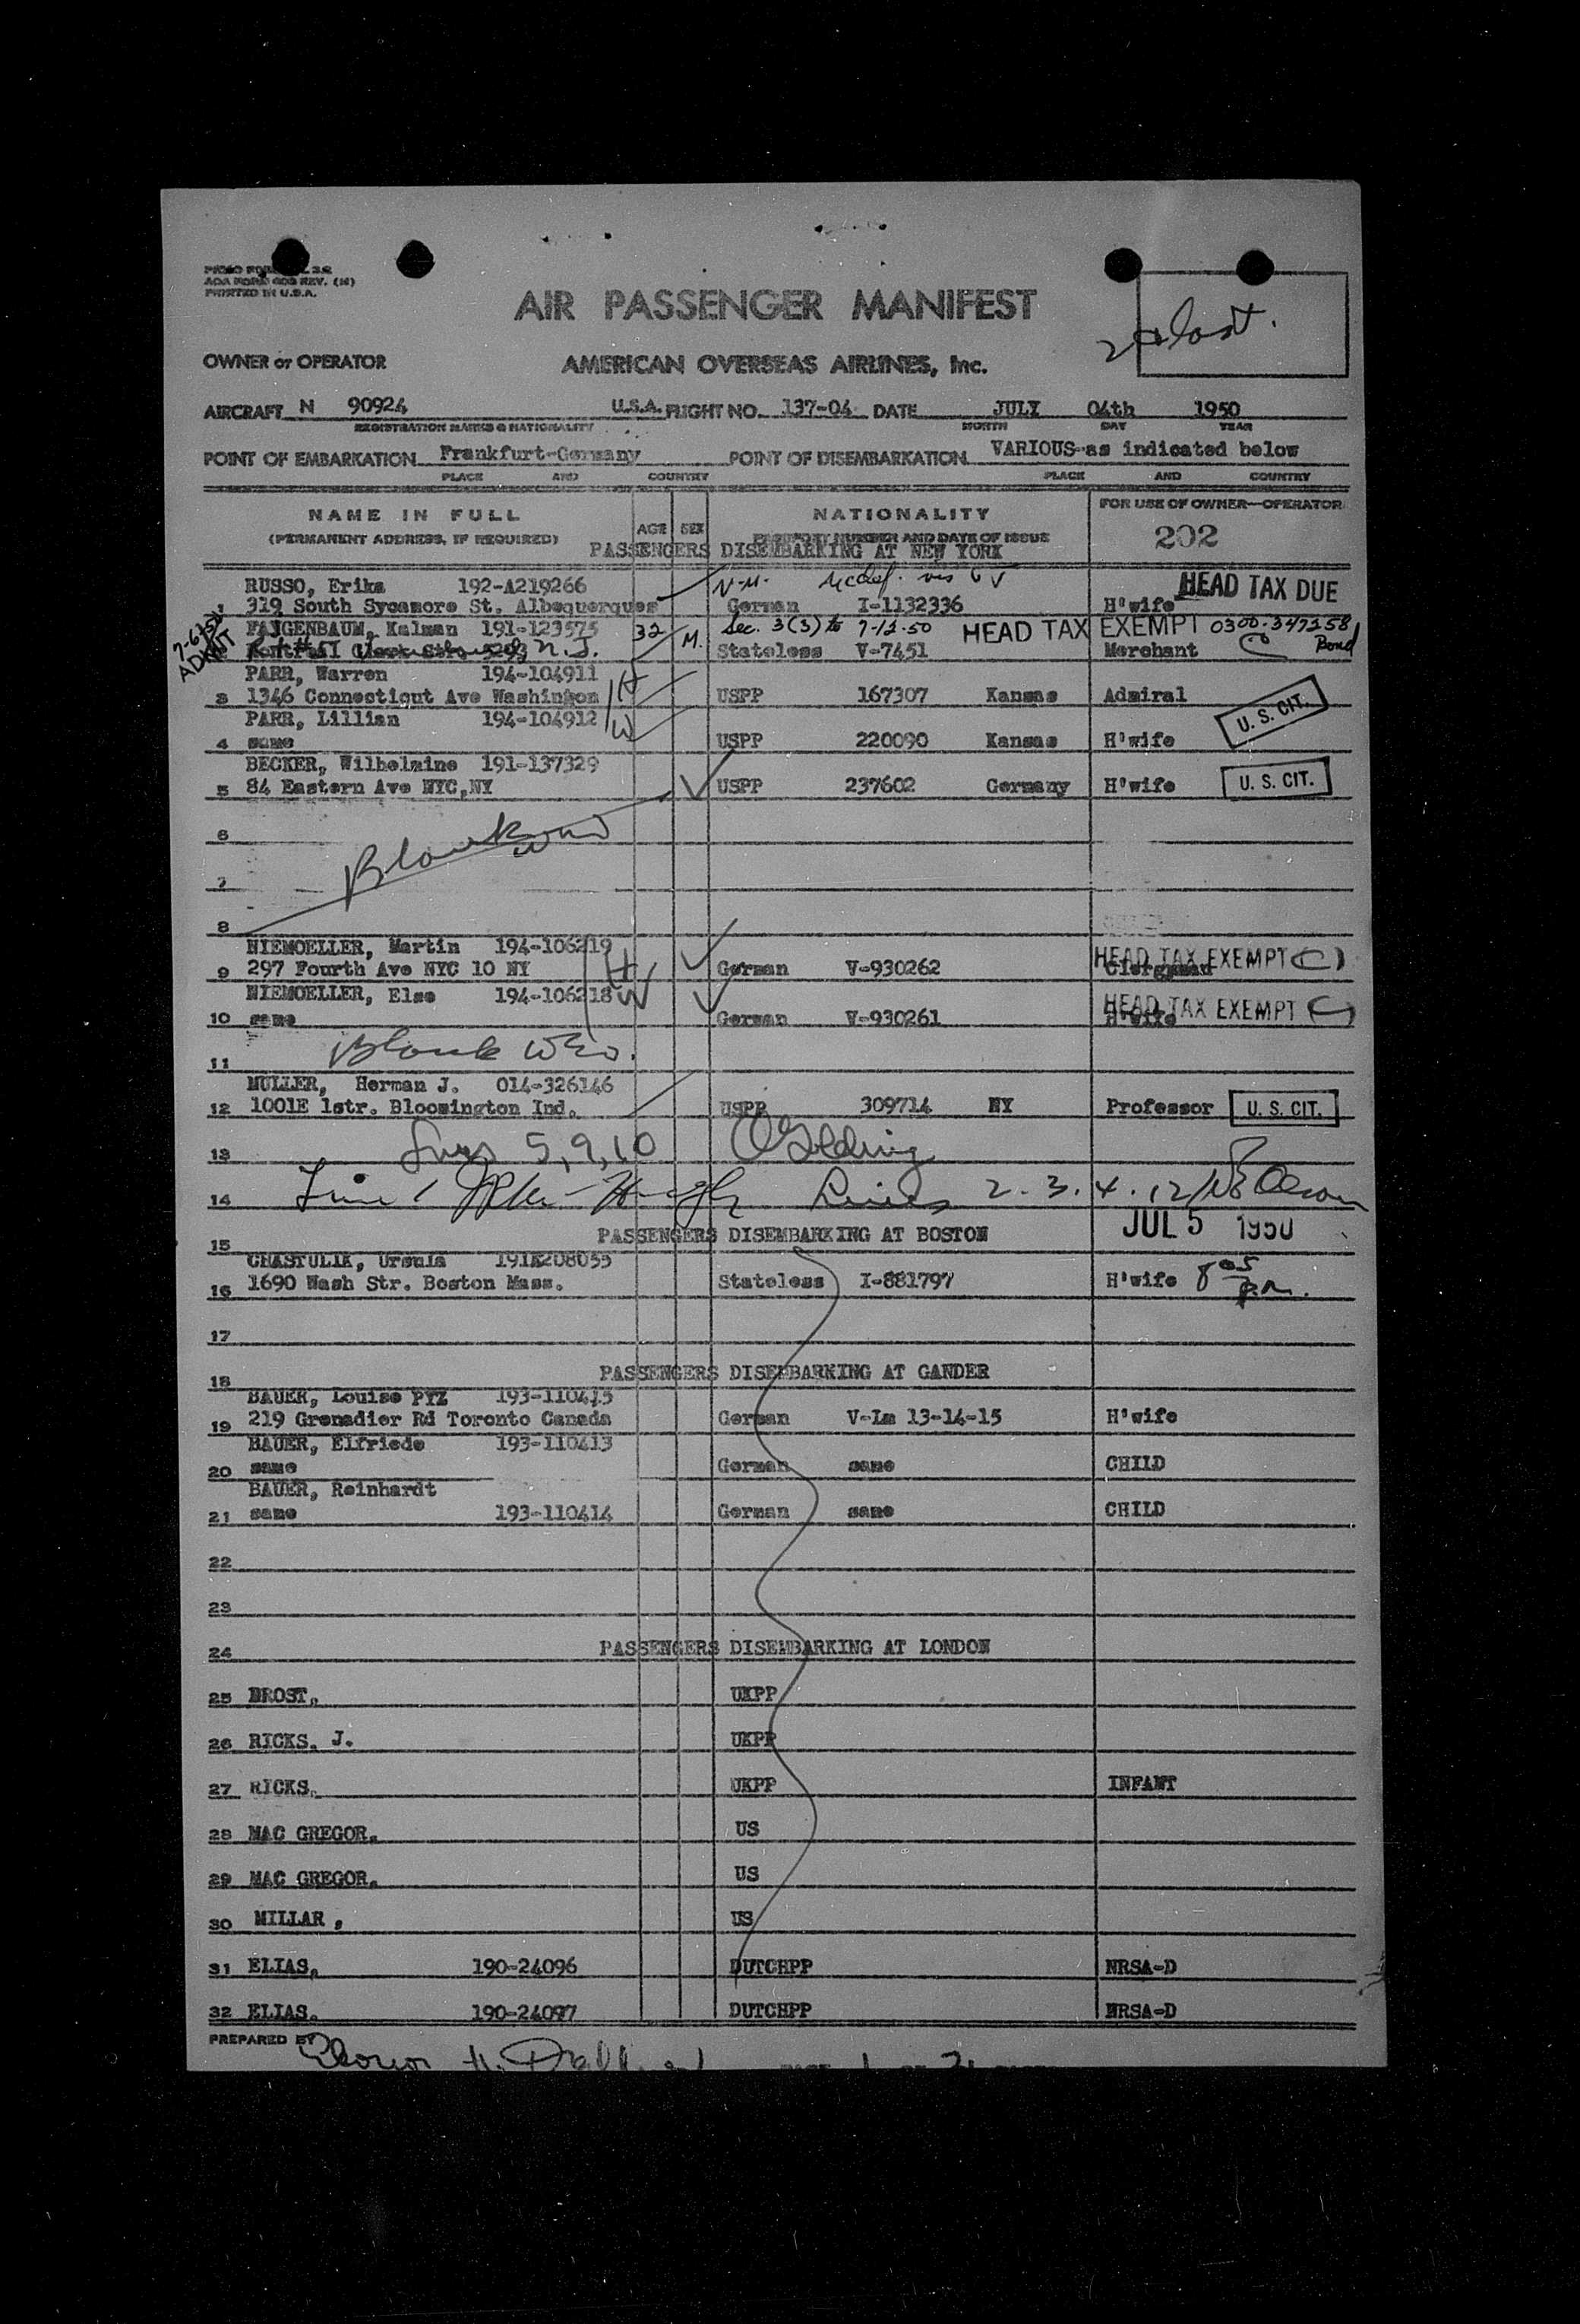 ADA FORM 603 REV. (M)
PRINTED IN U.S.A.
AIR PASSENGER MANIFEST
OWNER or OPERATOR AMERICAN OVERSEAS AIRLINES, Inc.
AIRCRAFT N 90924 U.S.A. FLIGHT NO. 137-04 DATE JULY 04th 1950
REGISTRATION MARKS & NATIONALITY MONTH DAY YEAR
POINT OF EMBARKATION Frankfurt-Germany POINT OF DISEMBARKATION VARIOUS-as indicated below
PLACE AND COUNTRY PLACE AND COUNTRY
NAME IN FULL AGE SEX NATIONALITY FOR USE OF OWNER-OPERATOR
(PERMANENT ADDRESS, IF REQUIRED) PASSPORT NUMBER AND DATE OF ISSUE 202
PASSENGERS DISEMBARKING AT NEW YORK
RUSSO, Erika 192-A219266 HEAD TAX DUE
1 319 South Sycamore St. Albequerques German I-1132336 H'wife
7-6/50 ADMIT
FAJGENBAUM, Kalman 191-123575 32 M. Sec. 3(3) to 7-12-50 HEAD TAX EXEMPT 0300-347258
N.J. Stateless V-7451 Merchant C Bond
PARR, Warren 194-104911 H
3 1346 Connecticut Ave Washington USPP 167307 Kansas Admiral
PARR, Lillian 194-104912 W U. S. CIT.
4 same USPP 220090 Kansas H'wife
BECKER, Wilhelmine 191-137329
5 84 Eastern Ave NYC,NY USPP 237602 Germany H'wife U. S. CIT.
6
Blank
7
8
NIEMOELLER, Martin 194-106219 H HEAD TAX EXEMPT C
9 297 Fourth Ave NYC 10 NY German V-930262 Clergyman
NIEMOELLER, Else 194-106218 W HEAD TAX EXEMPT C
10 same German V-930261 H'wife
11 Blank
MULLER, Herman J. 014-326146
12 1001E 1str. Bloomington Ind. USPP 309714 NY Professor U. S. CIT.
13 Lines 5, 9, 10 Golding
14 Line 1 Lines 2. 3. 4. 12 Olson
15 PASSENGERS DISEMBARKING AT BOSTON JUL 5 1950
CHASTULIK, Ursula 191K208055
16 1690 Wash Str. Boston Mass. Stateless I-881797 H'wife 8 05 p.m.
17
18 PASSENGERS DISEMBARKING AT GANDER
BAUER, Louise PYZ 193-110415
19 219 Grenadier Rd Toronto Canada German V-Lm 13-14-15 H'wife
BAUER, Elfriede 193-110413
20 same German same CHILD
BAUER, Reinhardt
21 same 193-110414 German same CHILD
22
23
24 PASSENGERS DISEMBARKING AT LONDON
25 BROST, UKPP
26 RICKS, J. UKPP
27 RICKS, UKPP INFANT
28 MAC GREGOR, US
29 MAC GREGOR, US
30 MILLAR, US
31 ELIAS, 190-24096 DUTCHPP NRSA-D
32 ELIAS, 190-24097 DUTCHPP NRSA-D
PREPARED BY